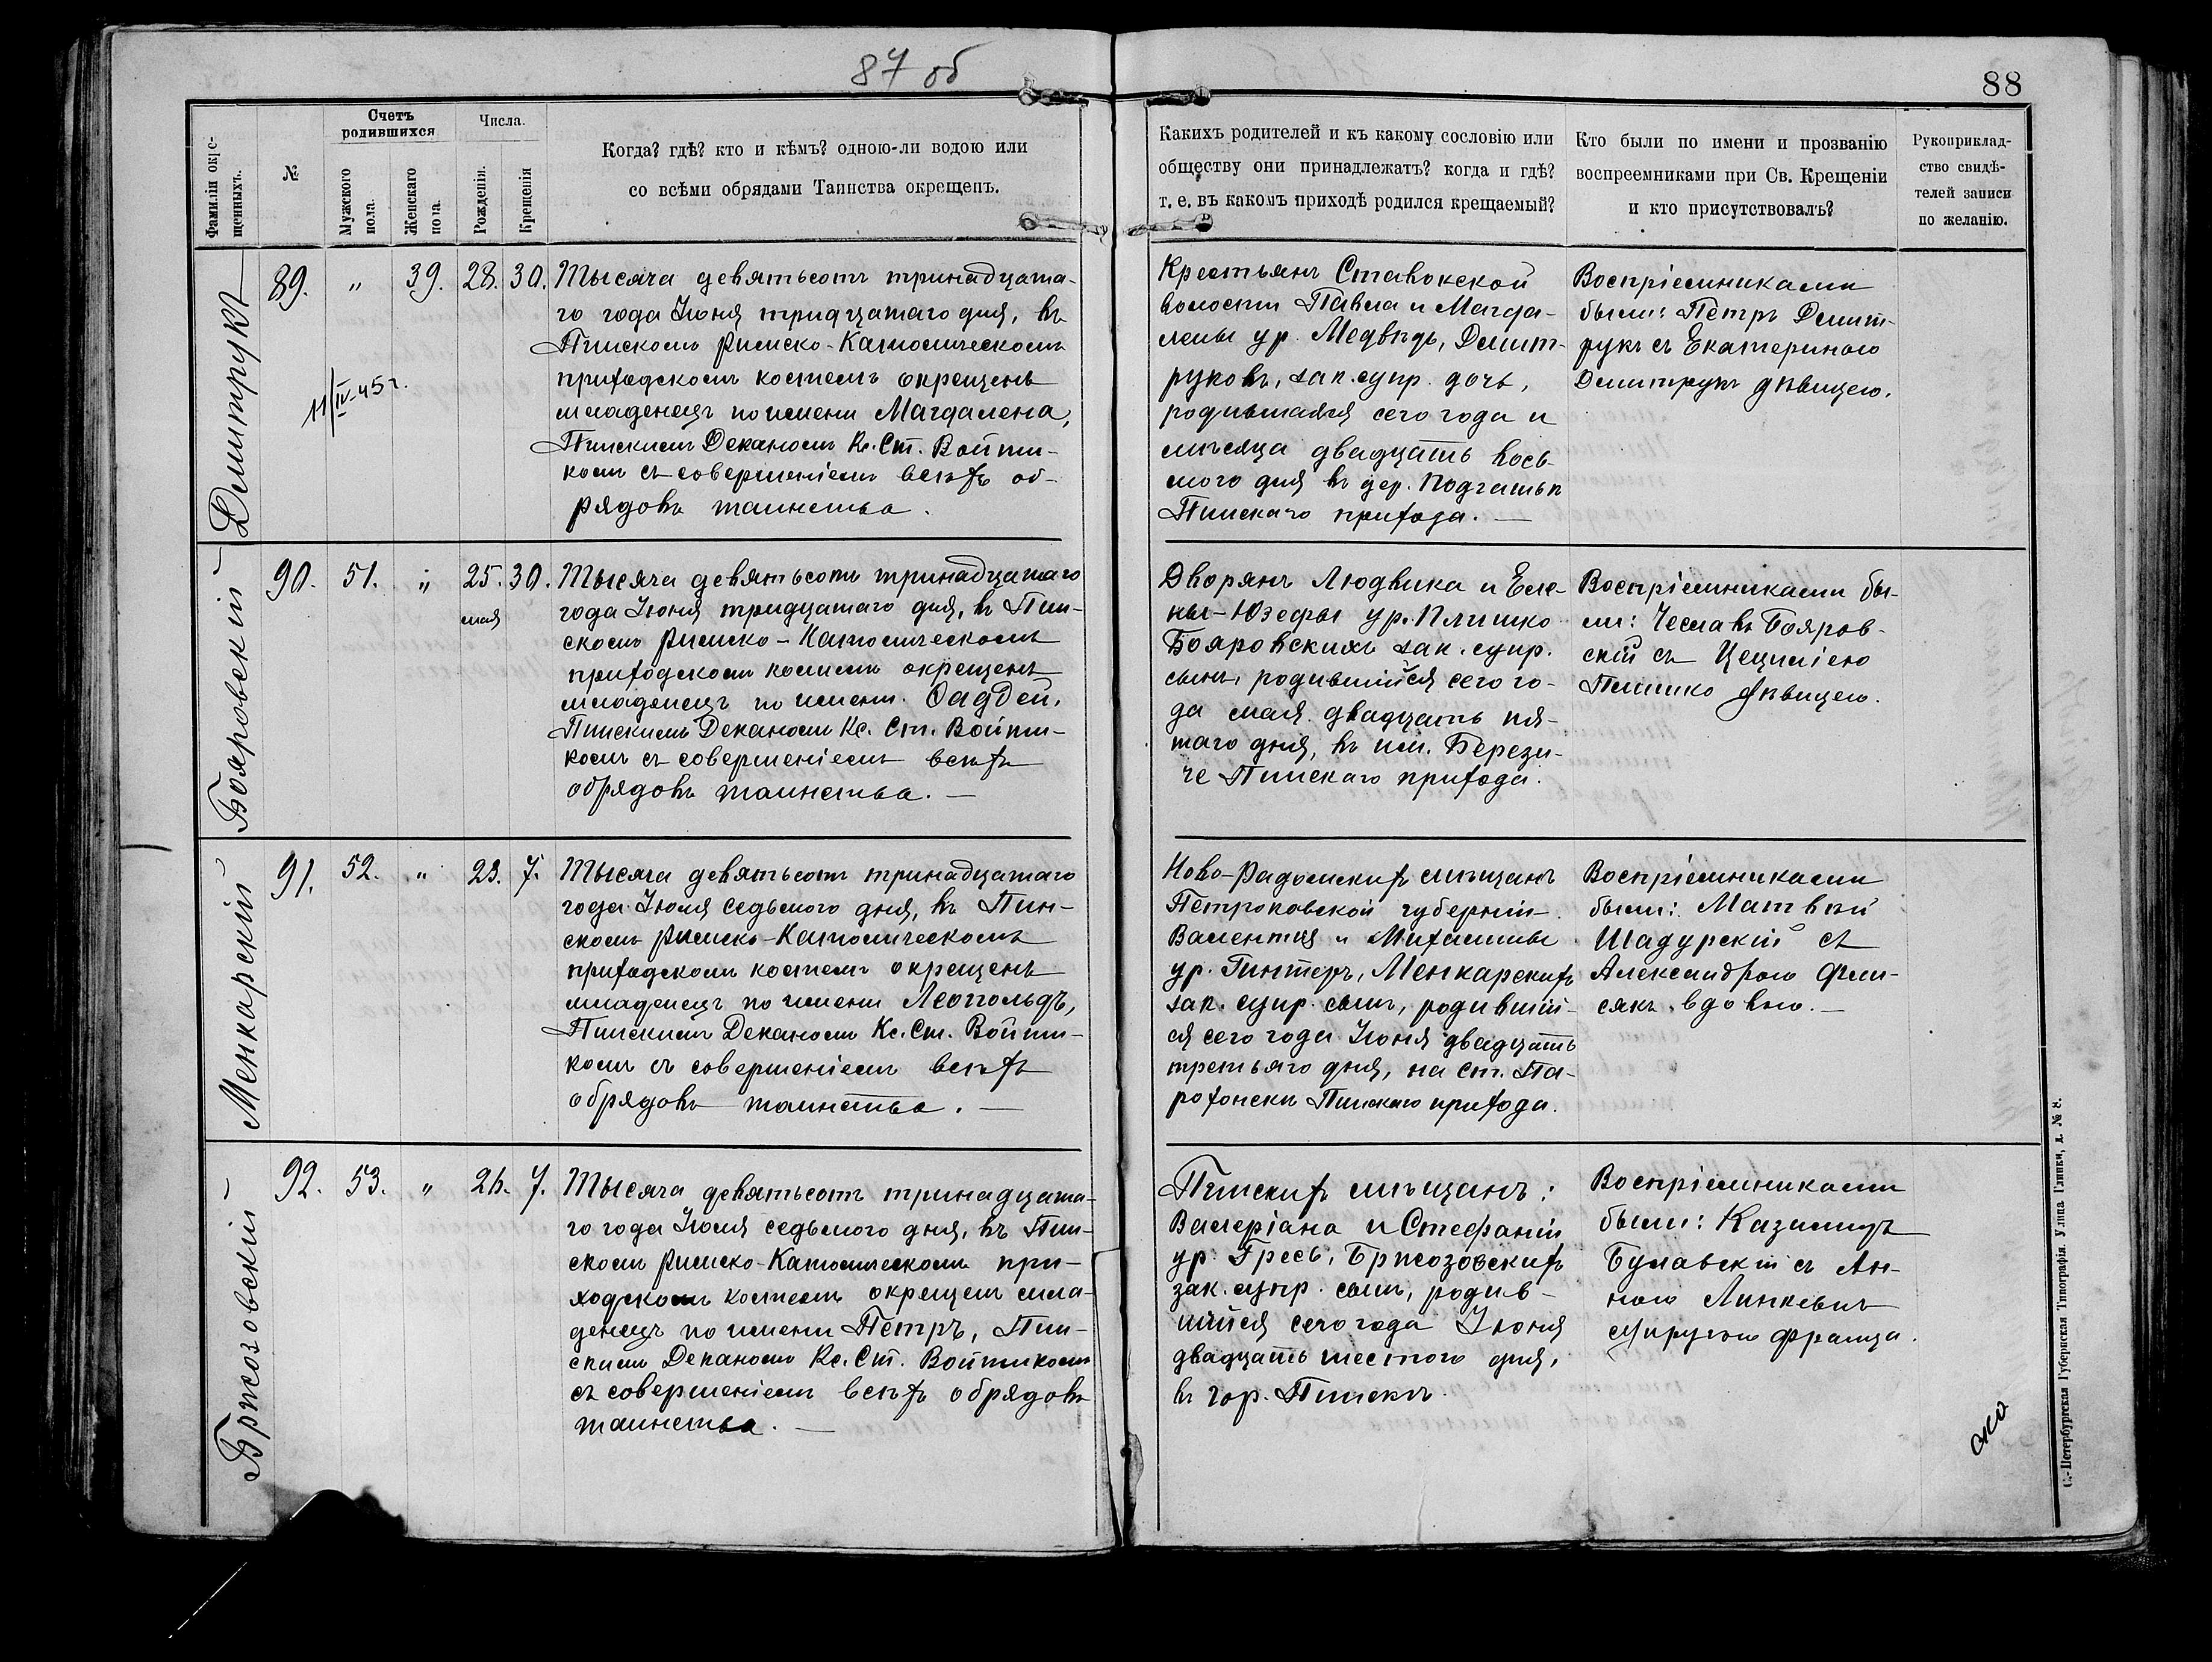 87 об
88
Счетъ родившихся
Числа.
Фамиліи окрещенныхъ.
№
Мужского пола.
Женскаго пола.
Рожденія.
Крещенія
Когда? гдѣ? кто и кѣмъ? одною-ли водою или
со всѣми обрядами Таинства окрещенъ.
Какихъ родителей и къ какому сословію или
обществу они принадлежатъ? когда и гдѣ?
т. е. въ какомъ приходѣ родился крещаемый?
Кто были по имени и прозванію
воспреемниками при Св. Крещеніи
и кто присутствовалъ?
Рукоприклад-
ство свидѣ-
телей записи
по желанію.
Дмитрукъ
89. " 39. 28. 30.
11/IV-45 г.
Тысяча девятьсотъ тринадцата-
го года Іюня тридцатаго дня, въ
Пинскомъ Римско-Католическомъ
приходскомъ костелѣ окрещенъ
младенецъ по имени Магдалена,
Пинскимъ Деканомъ Кс. Ст. Войти-
комъ съ совершеніемъ всѣхъ об-
рядовъ таинства.
Крестьянъ Ставокской
волости Павла и Магда-
лены ур. Медвѣдь, Дмит-
руковъ, зак. супр. дочь,
родившаяся сего года и
мѣсяца двадцать вось-
мого дня въ дер.
Пинскаго прихода. —
Воспріемниками
были: Петръ Дмит-
рукъ съ Екатериною
Дмитрукъ дѣвицею.
Бояровскій
90. 51. " 25. 30.
мая
Тысяча девятьсотъ тринадцатаго
года Іюня тридцатаго дня, въ Пин-
скомъ Римско-Католическомъ
приходскомъ костелѣ окрещенъ
младенецъ по имени Фаддей,
Пинскимъ Деканомъ Кс. Ст. Войти-
комъ съ совершеніемъ всѣхъ
обрядовъ таинства. —
Дворянъ Людвика и Еле-
ны-Юзефы ур. Плишко
Бояровскихъ зак. супр.
сынъ, родившійся сего го-
да мая двадцать пя-
таго дня, въ им. Берези-
че Пинскаго прихода.
Воспріемниками бы-
ли: Чеславъ Бояров-
скій съ Цециліею
Плишко дѣвицею.
Менкарскій
91. 52. " 23. 7.
Тысяча девятьсотъ тринадцатаго
года Іюля седьмого дня, въ Пин-
скомъ Римско-Католическомъ
приходскомъ костелѣ окрещенъ
младенецъ по имени Леопольдъ,
Пинскимъ Деканомъ Кс. Ст. Войти-
комъ съ совершеніемъ всѣхъ
обрядовъ таинства. —
Ново-Радомскихъ мѣщанъ
Петроковской губерніи
Валентія и Михалины
ур. Гинтеръ, Менкарскихъ
зак. супр. сынъ, родившій-
ся сего года Іюня двадцать
третьяго дня, на ст. Па-
рохонскъ Пинскаго прихода.
Воспріемниками
были: Матвѣй
Шадурскій съ
Александрою Фли-
сякъ вдовою. —
Бржозовскій
92. 53. " 26. 7.
Тысяча девятьсотъ тринадцата-
го года Іюля седьмого дня, въ Пин-
скомъ Римско-Католическомъ при-
ходскомъ костелѣ окрещенъ мла-
денецъ по имени Петръ, Пин-
скимъ Деканомъ Кс. Ст. Войтикомъ
съ совершеніемъ всѣхъ обрядовъ
таинства. —
Пинскихъ мѣщанъ:
Валеріана и Стефаніи
ур. Гресь, Бржозовскихъ
зак. супр. сынъ, родив-
шійся сего года Іюня
двадцать шестого дня,
въ гор. Пинскѣ.
Воспріемниками
были: Казимиръ
Булавскій съ Ан-
ною Линкевичъ
супругою Франца.
С.-Петербургская Губернская Типографія. Улица Глинки, д. № 8.